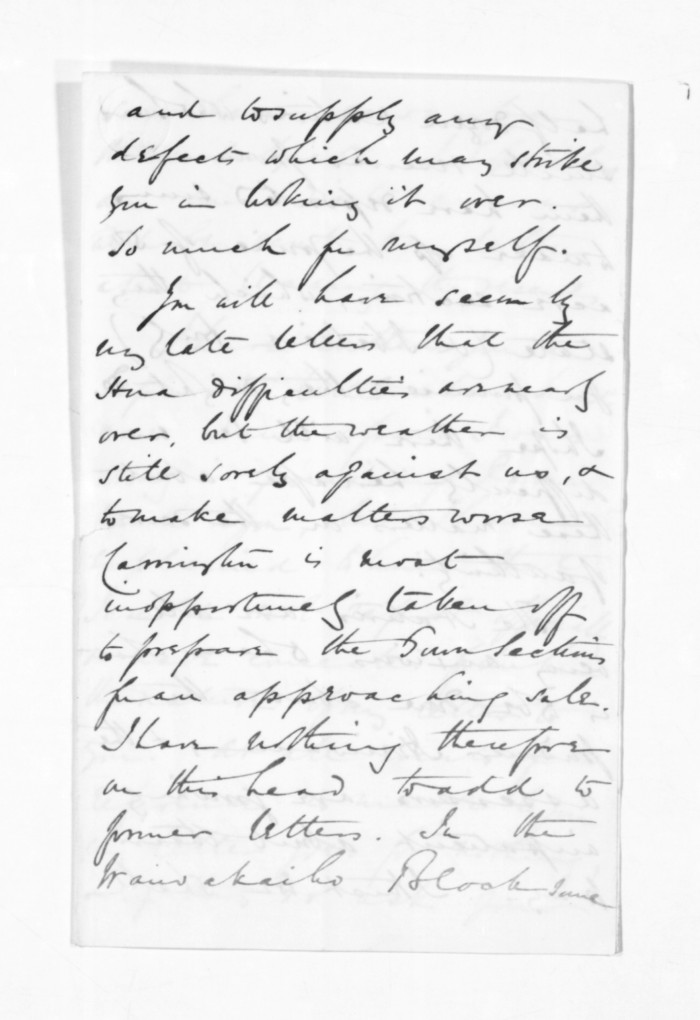 and to supply any
defects which may strike
you in looking it over.
So much for myself.
You will have seen by
my late letters that the
Hua difficulties are nearly
over, but the weather is
still sorely against us, &
to make matters worse
Carrington is most
inopportunely taken off
to prepare the Town Sections
for an approaching sale.
I have nothing therefore
on this head to add to
former letters. In the
Waiwakaiho Block